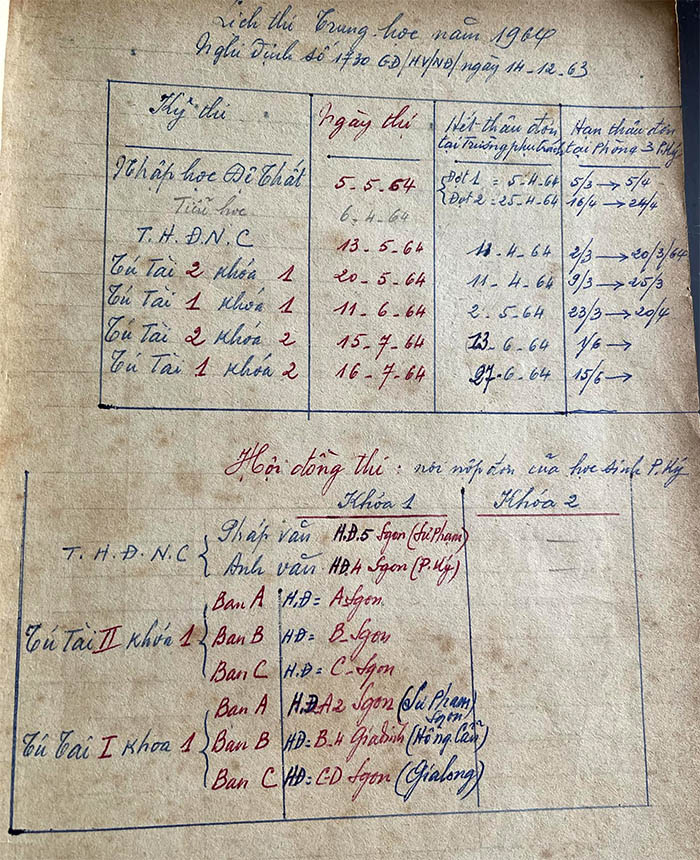 Lịch thi Trung học năm 1964
Nghị định số 1730 GD/HV/NĐ/ngày 14-12-63
Kỳ thi Ngày thi Hết thâu đơn tại Trường phụ trách Hạn thâu đơn tại Phòng 3 P.Ký
Nhập học Đệ Thất 5-5-64 Đợt 1 = 5-4-64 5/3 → 5/4
Đợt 2 = 25-4-64 16/4 → 24/4
Tiểu học 6-4-64
T.H.Đ.N.C 13-5-64 11-4-64 2/3 → 20/3/64
Tú Tài 2 khóa 1 20-5-64 11-4-64 9/3 → 25/3
Tú Tài 1 khóa 1 11-6-64 2-5-64 23/3 → 20/4
Tú Tài 2 khóa 2 15-7-64 13-6-64 1/6 →
Tú Tài 1 khóa 2 16-7-64 27-6-64 15/6 →
Hội đồng thi: nơi nộp đơn của học sinh P.Ký
Khóa 1 Khóa 2
T.H.Đ.N.C Pháp văn H.Đ.5 Sgon (Sư Phạm) —
Anh văn HĐ.4 Sgon (P.Ký) —
Tú Tài II khóa 1 Ban A H.Đ = A Sgon
Ban B HĐ = B-Sgon
Ban C H.Đ = C-Sgon
Tú Tài I khoa 1 Ban A H.Đ A2 Sgon (Sư Phạm Sgon)
Ban B HĐ = B-4 Giađinh (Hồng Cẩn)
Ban C HĐ = CD Sgon (Gialong)